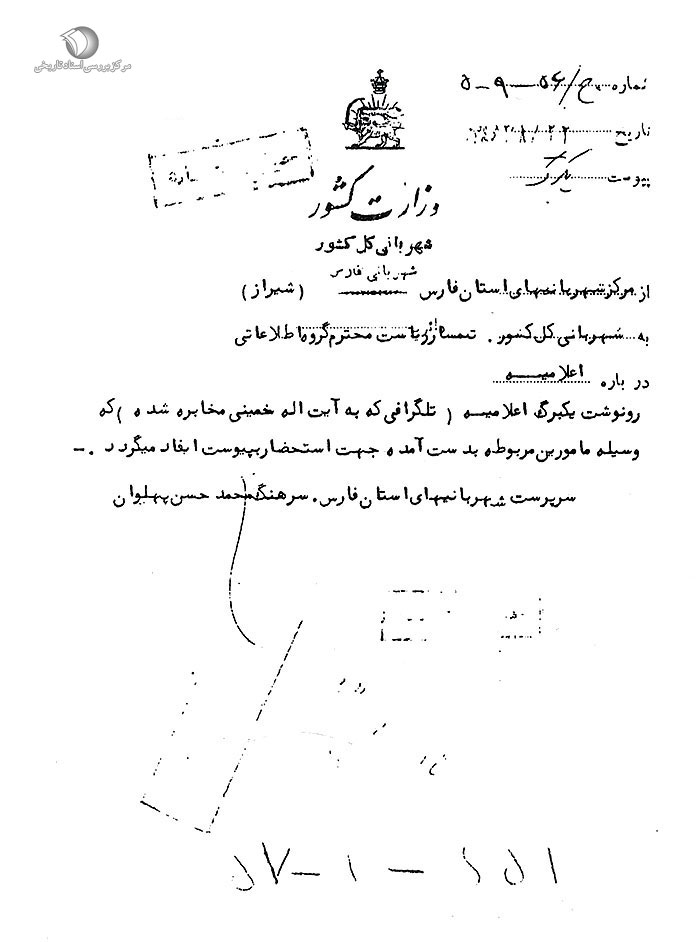 مرکز بررسی اسناد تاریخی
شماره ۵-۹-۵۶/ح
تاریخ
پیوست یکبرگ
وزارت کشور
شهربانی کل کشور
شهربانی فارس
از مرکز شهربانیهای استان فارس (شیراز)
به شهربانی کل کشور. تیمسار ریاست محترم گروه اطلاعاتی
در باره اعلامیه
رونوشت یکبرگ اعلامیه ( تلگرافی که به آیت اله خمینی مخابره شده ) که
وسیله مامورین مربوطه بدست آمده جهت استحضار بپیوست ایفاد میگردد .-
سرپرست شهربانیهای استان فارس. سرهنگ محمد حسن پهلوان